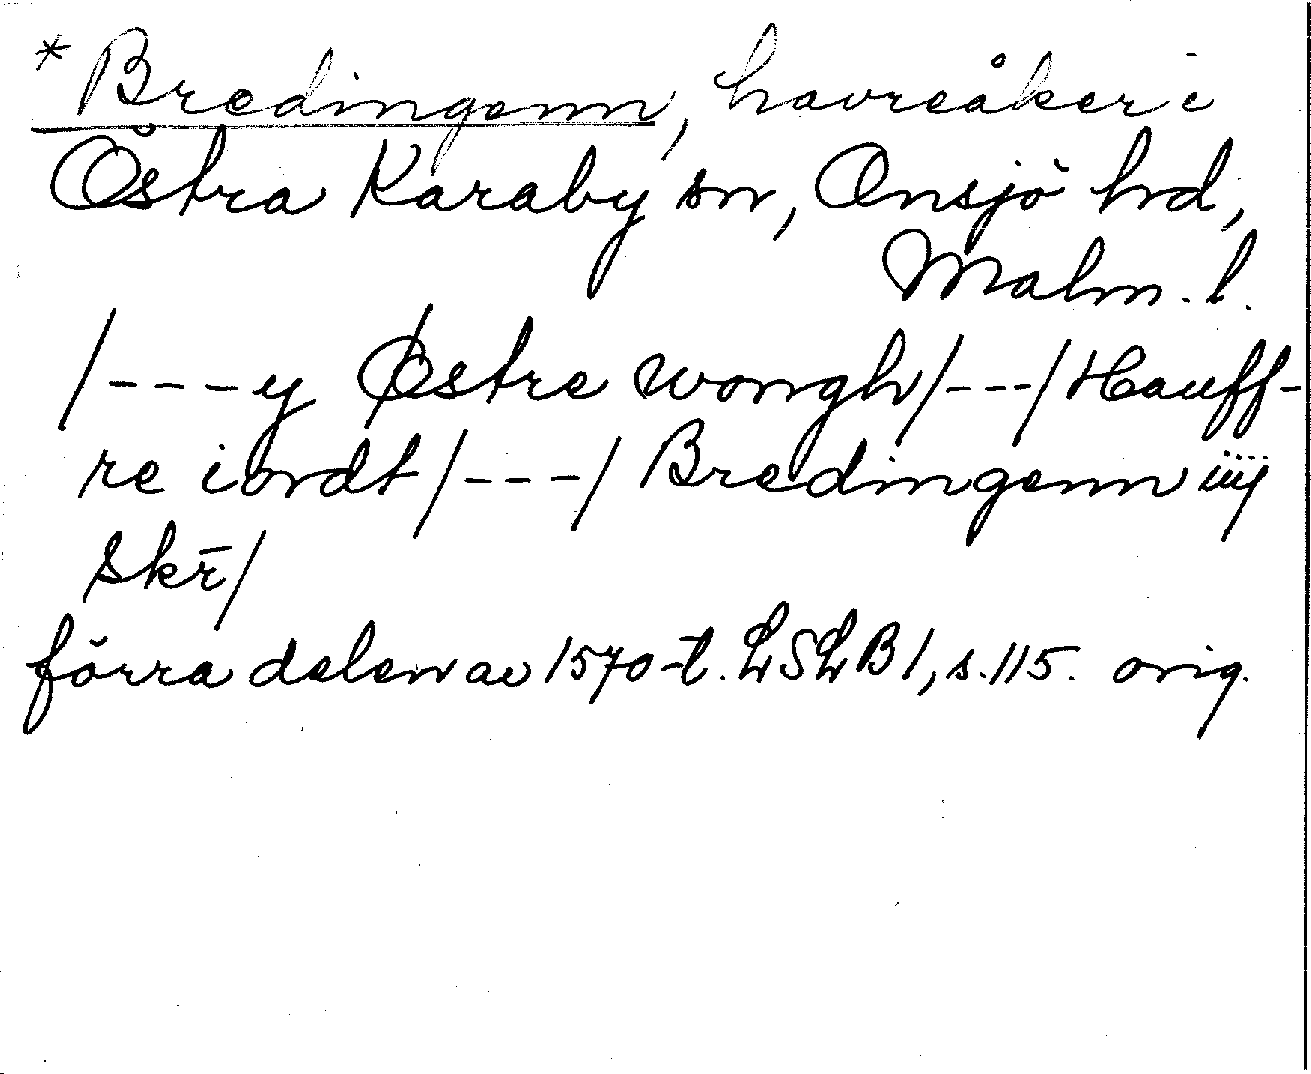 * Bredingenn, havreåker i
Östra Karaby sn, Onsjö hd,
Malm. l.
/---y Østre wongh/---/Hauff-
re iordt/---/Bredingenn iiij
skr̄/
förra delen av 1570-t. LSLB1, s.115. orig.